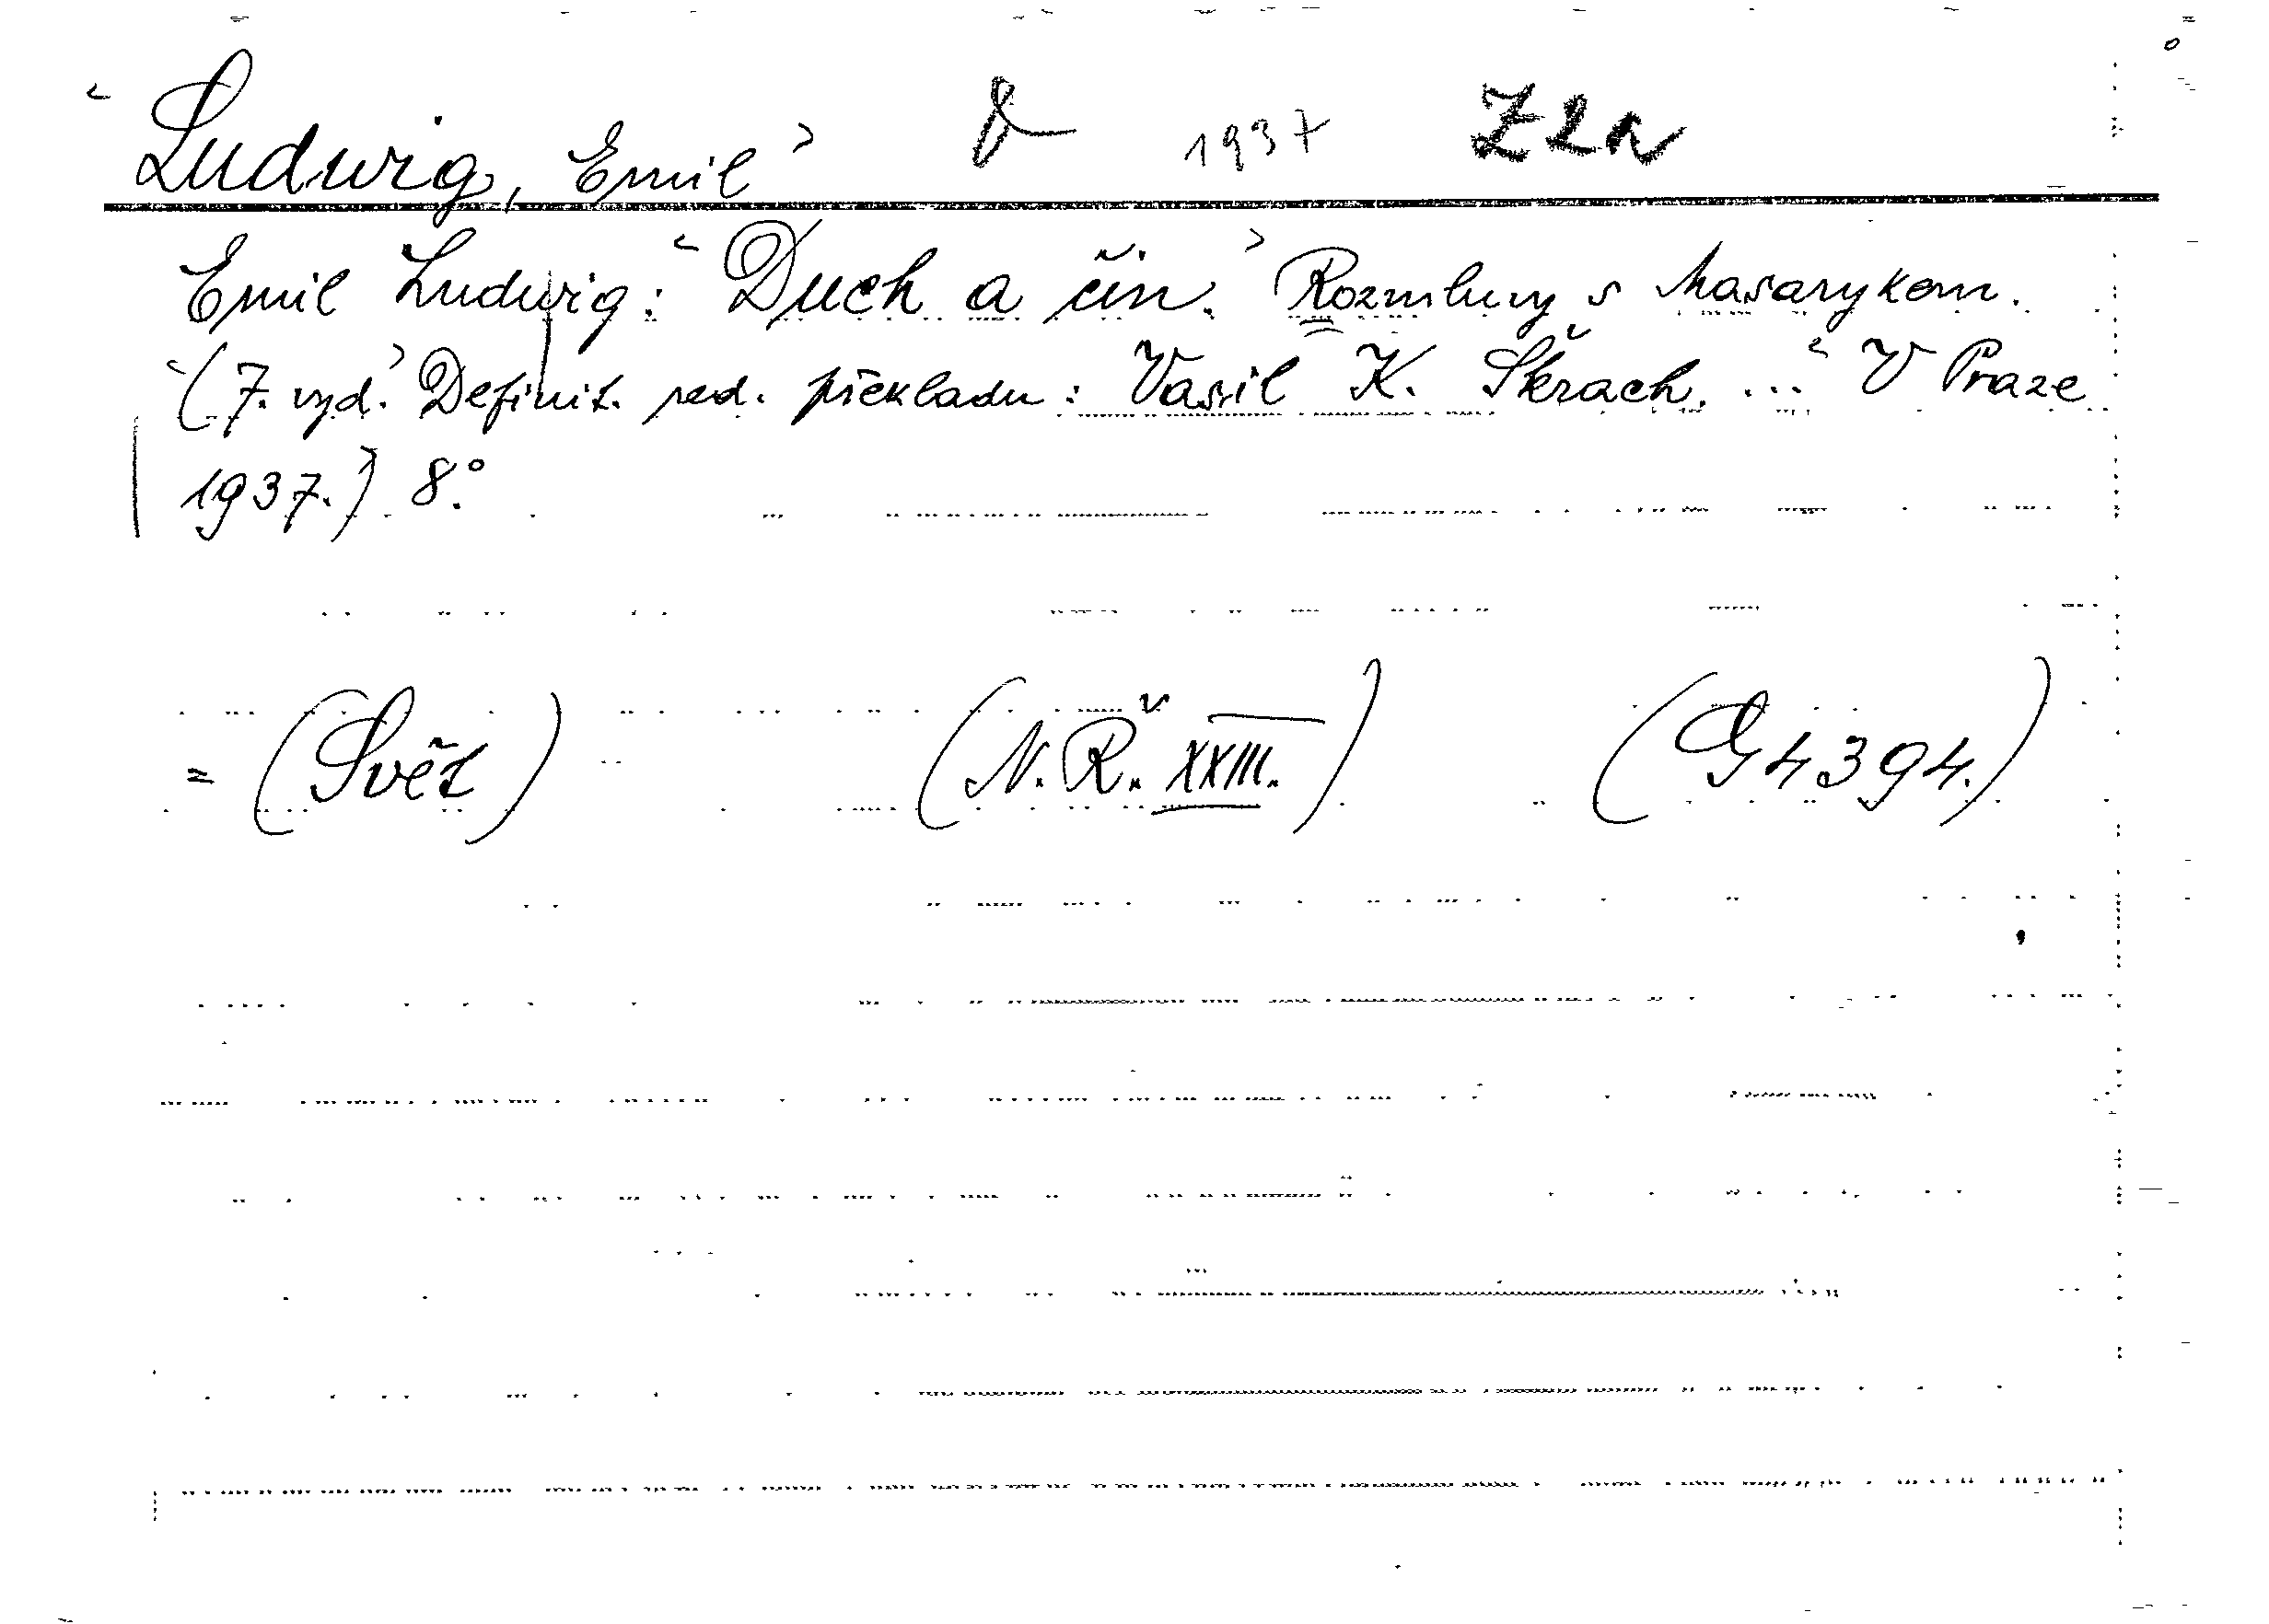 Ludwig, Emil 1937 Z2a
Emil Ludwig: Duch a čin. Rozmluvy s Masarykem.
(7. vyd. Definit. red. překladu: Vasil K. Škrach. ... V Praze
1937.) 8°.
= (Svět) (N. Ř. XXIII.) (G 4394.)